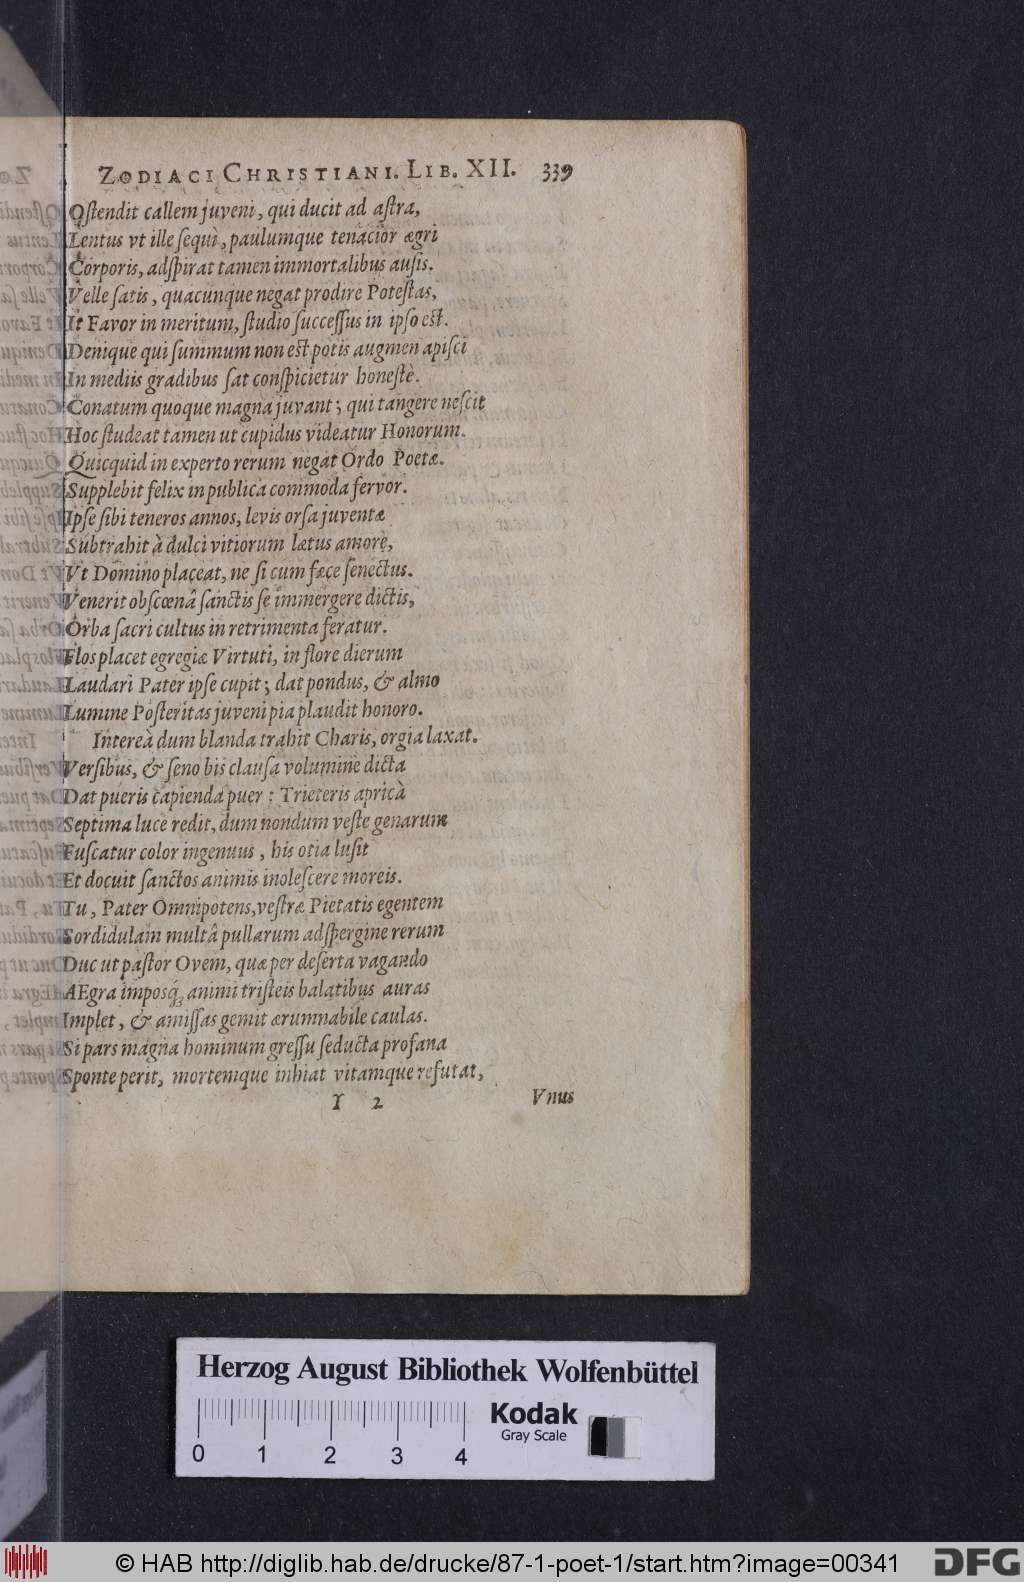 ZODIACI CHRISTIANI. LIB. XII. 339
Oſtendit callem juveni, qui ducit ad aſtra,
Lentus vt ille ſequi, paulumque tenacior ægri
Corporis, adſpirat tamen immortalibus auſis.
Velle ſatis, quacunque negat prodire Poteſtas,
It Favor in meritum, ſtudio ſucceſſus in ipſo eſt.
Denique qui ſummum non eſt potis augmen apiſci
In mediis gradibus ſat conſpicietur honeſtè.
Conatum quoque magna juvant; qui tangere neſcit
Hoc ſtudeat tamen ut cupidus videatur Honorum.
Quicquid in experto rerum negat Ordo Poetæ.
Supplebit felix in publica commoda fervor.
Ipſe ſibi teneros annos, levis orſa juventæ
Subtrahit à dulci vitiorum lætus amore,
Vt Domino placeat, ne ſi cum fæce ſenectus.
Venerit obſcœnâ ſanctis ſe immergere dictis,
Orba ſacri cultus in retrimenta feratur.
Flos placet egregiæ Virtuti, in flore dierum
Laudari Pater ipſe cupit; dat pondus, & almo
Lumine Poſteritas juveni pia plaudit honoro.
Intereà dum blanda trahit Charis, orgia laxat.
Verſibus, & ſeno bis clauſa volumine dicta
Dat pueris capienda puer: Trieteris apricà
Septima luce redit, dum nondum veſte genarum
Fuſcatur color ingenuus, his otia luſit
Et docuit ſanctos animis inoleſcere moreis.
Tu, Pater Omnipotens, veſtræ Pietatis egentem
Sordidulam multâ pullarum adſpergine rerum
Duc ut paſtor Ovem, quæ per deſerta vagando
AEgra imposq́ue animi triſteis balatibus auras
Implet, & amiſſas gemit ærumnabile caulas.
Si pars magna hominum greſſu ſeducta profana
Sponte perit, mortemque inhiat vitamque refutat,
Y 2 Vnus
Herzog August Bibliothek Wolfenbüttel
Kodak
Gray Scale
0 1 2 3 4
© HAB http://diglib.hab.de/drucke/87-1-poet-1/start.htm?image=00341 DFG